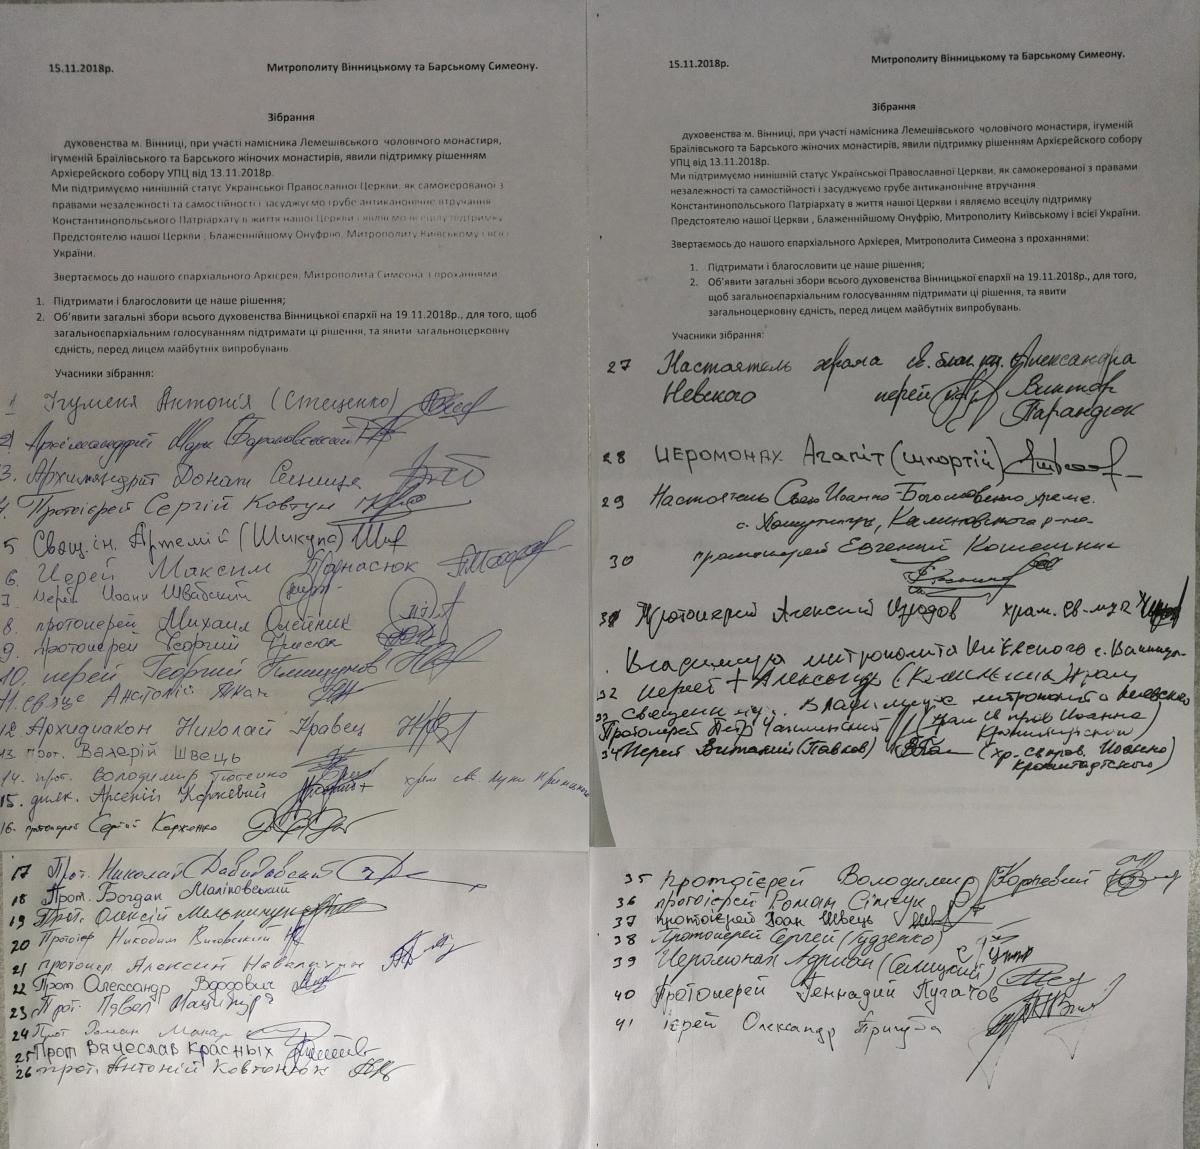 15.11.2018р. Митрополиту Вінницькому та Барському Симеону.
Зібрання
духовенства м. Вінниці, при участі намісника Лемешівського чоловічого монастиря,
ігуменій Браїлівського та Барського жіночих монастирів, явили підтримку рішенням
Архієрейского собору УПЦ від 13.11.2018р.
Ми підтримуємо нинішній статус Української Православної Церкви, як самокерованої з
правами незалежності та самостійності і засуджуємо грубе антиканонічне втручання
Константинопольського Патріархату в життя нашої Церкви і являємо всецілу підтримку
Предстоятелю нашої Церкви , Блаженнійшому Онуфрію, Митрополиту Київському і всієї
України.
Звертаємось до нашого єпархіального Архієрея, Митрополита Симеона з проханнями:
1. Підтримати і благословити це наше рішення;
2. Об'явити загальні збори всього духовенства Вінницької єпархії на 19.11.2018р., для того, щоб
загальноєпархіальним голосуванням підтримати ці рішення, та явити загальноцерковну
єдність, перед лицем майбутніх випробувань.
Учасники зібрання:
1 Ігуменя Антонія (Стеценко)
2 Архімандрит Марк
3. Архимандрит Донат
4. Протоієрей Сергій Ковтун
5 Свящ.ін. Артемій (Шикула)
6. Иерей Максим Панасюк
7. иерей Иоанн Швабский
8. протоиерей Михаил Олейник
9. Протоиерей Георгий
10. иерей Георгий
11. свящ Анатолій
12. Архидиакон Николай Кравец
13. прот. Валерій Швець
14. прот. Володимир
15. диак. Арсеній Коржевий храм св. Луки
16. протоиерей Сергий Корженко
17 Прот. Николай Давидовский
18 Прот. Богдан Маліновський
19 Прот. Олексій Мельничук
20 Протоієр Никодим
21 протоиер. Алексий
22 Прот Олександр
23 Прот. Павел
24 Прот Роман
25 Прот Вячеслав Красных
26 прот. Антоній Ковтонюк
15.11.2018р. Митрополиту Вінницькому та Барському Симеону.
Зібрання
духовенства м. Вінниці, при участі намісника Лемешівського чоловічого монастиря, ігуменій
Браїлівського та Барського жіночих монастирів, явили підтримку рішенням Архієрейского собору
УПЦ від 13.11.2018р.
Ми підтримуємо нинішній статус Української Православної Церкви, як самокерованої з правами
незалежності та самостійності і засуджуємо грубе антиканонічне втручання
Константинопольського Патріархату в життя нашої Церкви і являємо всецілу підтримку
Предстоятелю нашої Церкви , Блаженнійшому Онуфрію, Митрополиту Київському і всієї України.
Звертаємось до нашого єпархіального Архієрея, Митрополита Симеона з проханнями:
1. Підтримати і благословити це наше рішення;
2. Об'явити загальні збори всього духовенства Вінницької єпархії на 19.11.2018р., для того,
щоб загальноєпархіальним голосуванням підтримати ці рішення, та явити
загальноцерковну єдність, перед лицем майбутніх випробувань.
Учасники зібрання:
27 Настоятель храма св. благ. кн. Александра
Невского иерей Виктор
Парандюк
28 иеромонах Агапіт (шпортій)
29 Настоятель Свято Иоанно-Богословского храма
с. Калиновского р-на
30 протоиерей Евгений
31 Протоиерей Алексий храм. Св-мч
Владимира митрополита Киевского г. Винница
32 иерей Александр храм
свещенмуч. Владимира митрополита Киевского
33 Протоерей Петр (храм св прав Иоанна
Кронштадтский)
34 Иерей Виталий (Павков) (хр. св. прав. Иоанна
Кронштадтского)
35 протоієрей Володимир Коржевий
36 протоієрей Роман
37 протоієрей Іоан Швець
38 Протоиерей Сергей (Гудзенко)
39 Иеромонах Адриан (Селицкий)
40 Протоиерей Геннадий Пугачов
41 ієрей Олександр Пригуба